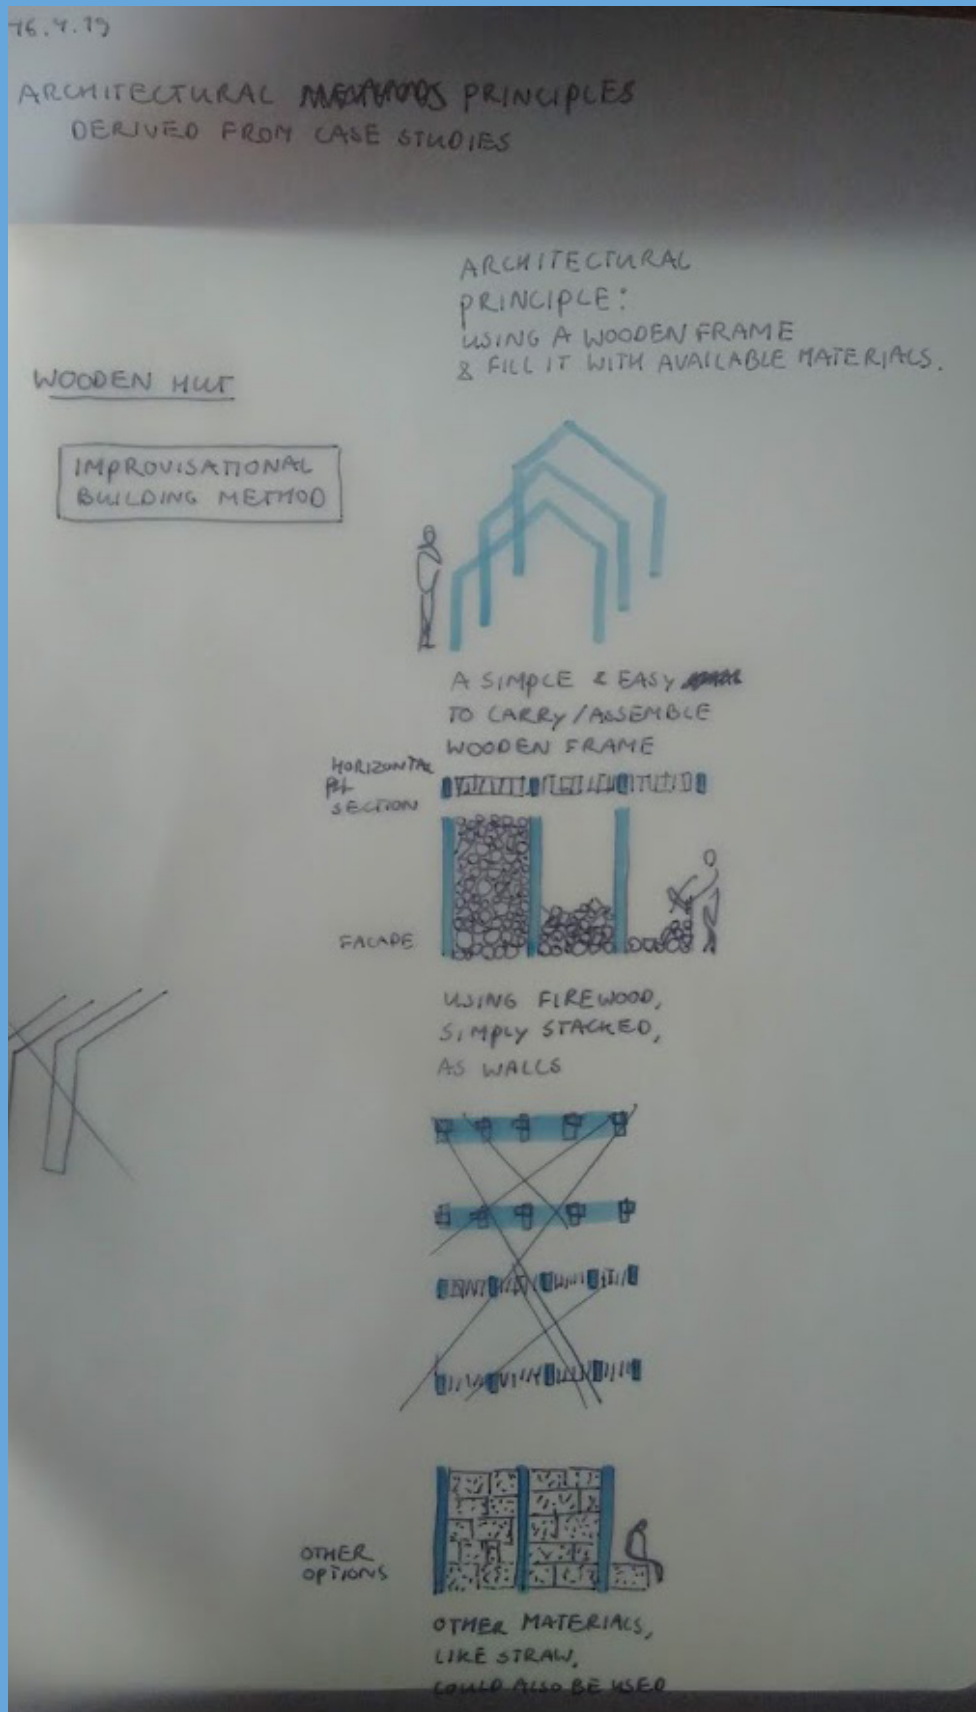 16.4.19
ARCHITECTURAL PRINCIPLES
DERIVED FROM CASE STUDIES
ARCHITECTURAL
PRINCIPLE:
USING A WOODEN FRAME
& FILL IT WITH AVAILABLE MATERIALS.
WOODEN HUT
IMPROVISATIONAL
BUILDING METHOD
A SIMPLE & EASY
TO CARRY/ASSEMBLE
WOODEN FRAME
HORIZONTAL
SECTION
FACADE
USING FIREWOOD,
SIMPLY STACKED,
AS WALLS
OTHER
OPTIONS
OTHER MATERIALS,
LIKE STRAW,
COULD ALSO BE USED